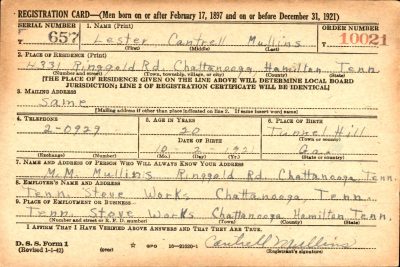 REGISTRATION CARD—(Men born on or after February 17, 1897 and on or before December 31, 1921)
SERIAL NUMBER 1. NAME (Print) ORDER NUMBER
657 Lester Cantrell Mullins 10021
(First) (Middle) (Last)
2. PLACE OF RESIDENCE (Print)
4331 Ringgold Rd. Chattanooga Hamilton Tenn.
(Number and street) (Town, township, village, or city) (County) (State)
[THE PLACE OF RESIDENCE GIVEN ON THE LINE ABOVE WILL DETERMINE LOCAL BOARD
JURISDICTION; LINE 2 OF REGISTRATION CERTIFICATE WILL BE IDENTICAL]
3. MAILING ADDRESS
Same
[Mailing address if other than place indicated on line 2. If same insert word same]
4. TELEPHONE 5. AGE IN YEARS 6. PLACE OF BIRTH
2-0929 20 Tunnel Hill
DATE OF BIRTH (Town or county)
10 2 1921 Ga.
(Exchange) (Number) (Mo.) (Day) (Yr.) (State or country)
7. NAME AND ADDRESS OF PERSON WHO WILL ALWAYS KNOW YOUR ADDRESS
M. M. Mullins Ringgold Rd. Chattanooga Tenn.
8. EMPLOYER'S NAME AND ADDRESS
Tenn. Stove Works Chattanooga, Tenn.
9. PLACE OF EMPLOYMENT OR BUSINESS
Tenn. Stove Works Chattanooga Hamilton Tenn.
(Number and street or R. F. D. number) (Town) (County) (State)
I AFFIRM THAT I HAVE VERIFIED ABOVE ANSWERS AND THAT THEY ARE TRUE.
D. S. S. Form 1
(Revised 1-1-42) (over) GPO 16—21630-1 Cantrell Mullins
(Registrant's signature)